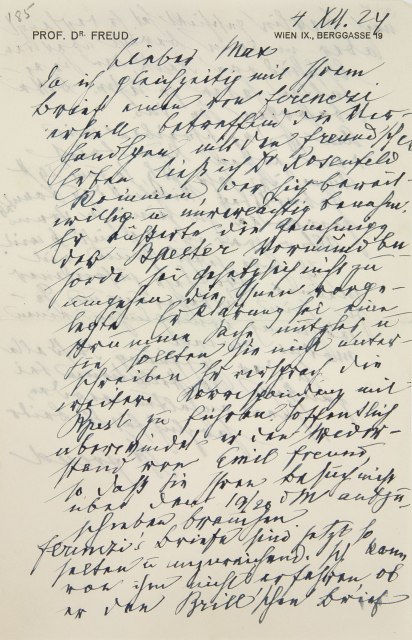 185
4 XII. 24
PROF. DR. FREUD
WIEN IX., BERGGASSE 19
Lieber Max
Da ich gleichzeitig mit Ihrem
Brief einen von Ferenczi
erhielt betreffend die Ver-
handlgen mit den Freund'schen
Erben ließ ich Dr Rosenfeld
kommen, der sich bereit-
willig u unverdächtig benahm.
Er äußerte die Genehmigg
der Pester Vormundbe-
hörde sei gesetzlich nicht zu
umgehen die Ihnen vorge-
legte Erklärung sei eine
u
Sie sollten sie nicht unter-
schreiben Er versprach die
weitere Korrespondenz mit
Pest zu führen Hoffentlich
überwindet er den Wider-
stand von Emil Freund,
so daß Sie Ihren Besuch nicht
über den 19/20 dM aufzu-
schieben brauchen
Ferenczi's Briefe sind jetzt so
selten u unzureichend. Ich kann
von ihm nicht erfahren, ob
er den Brill'schen Brief